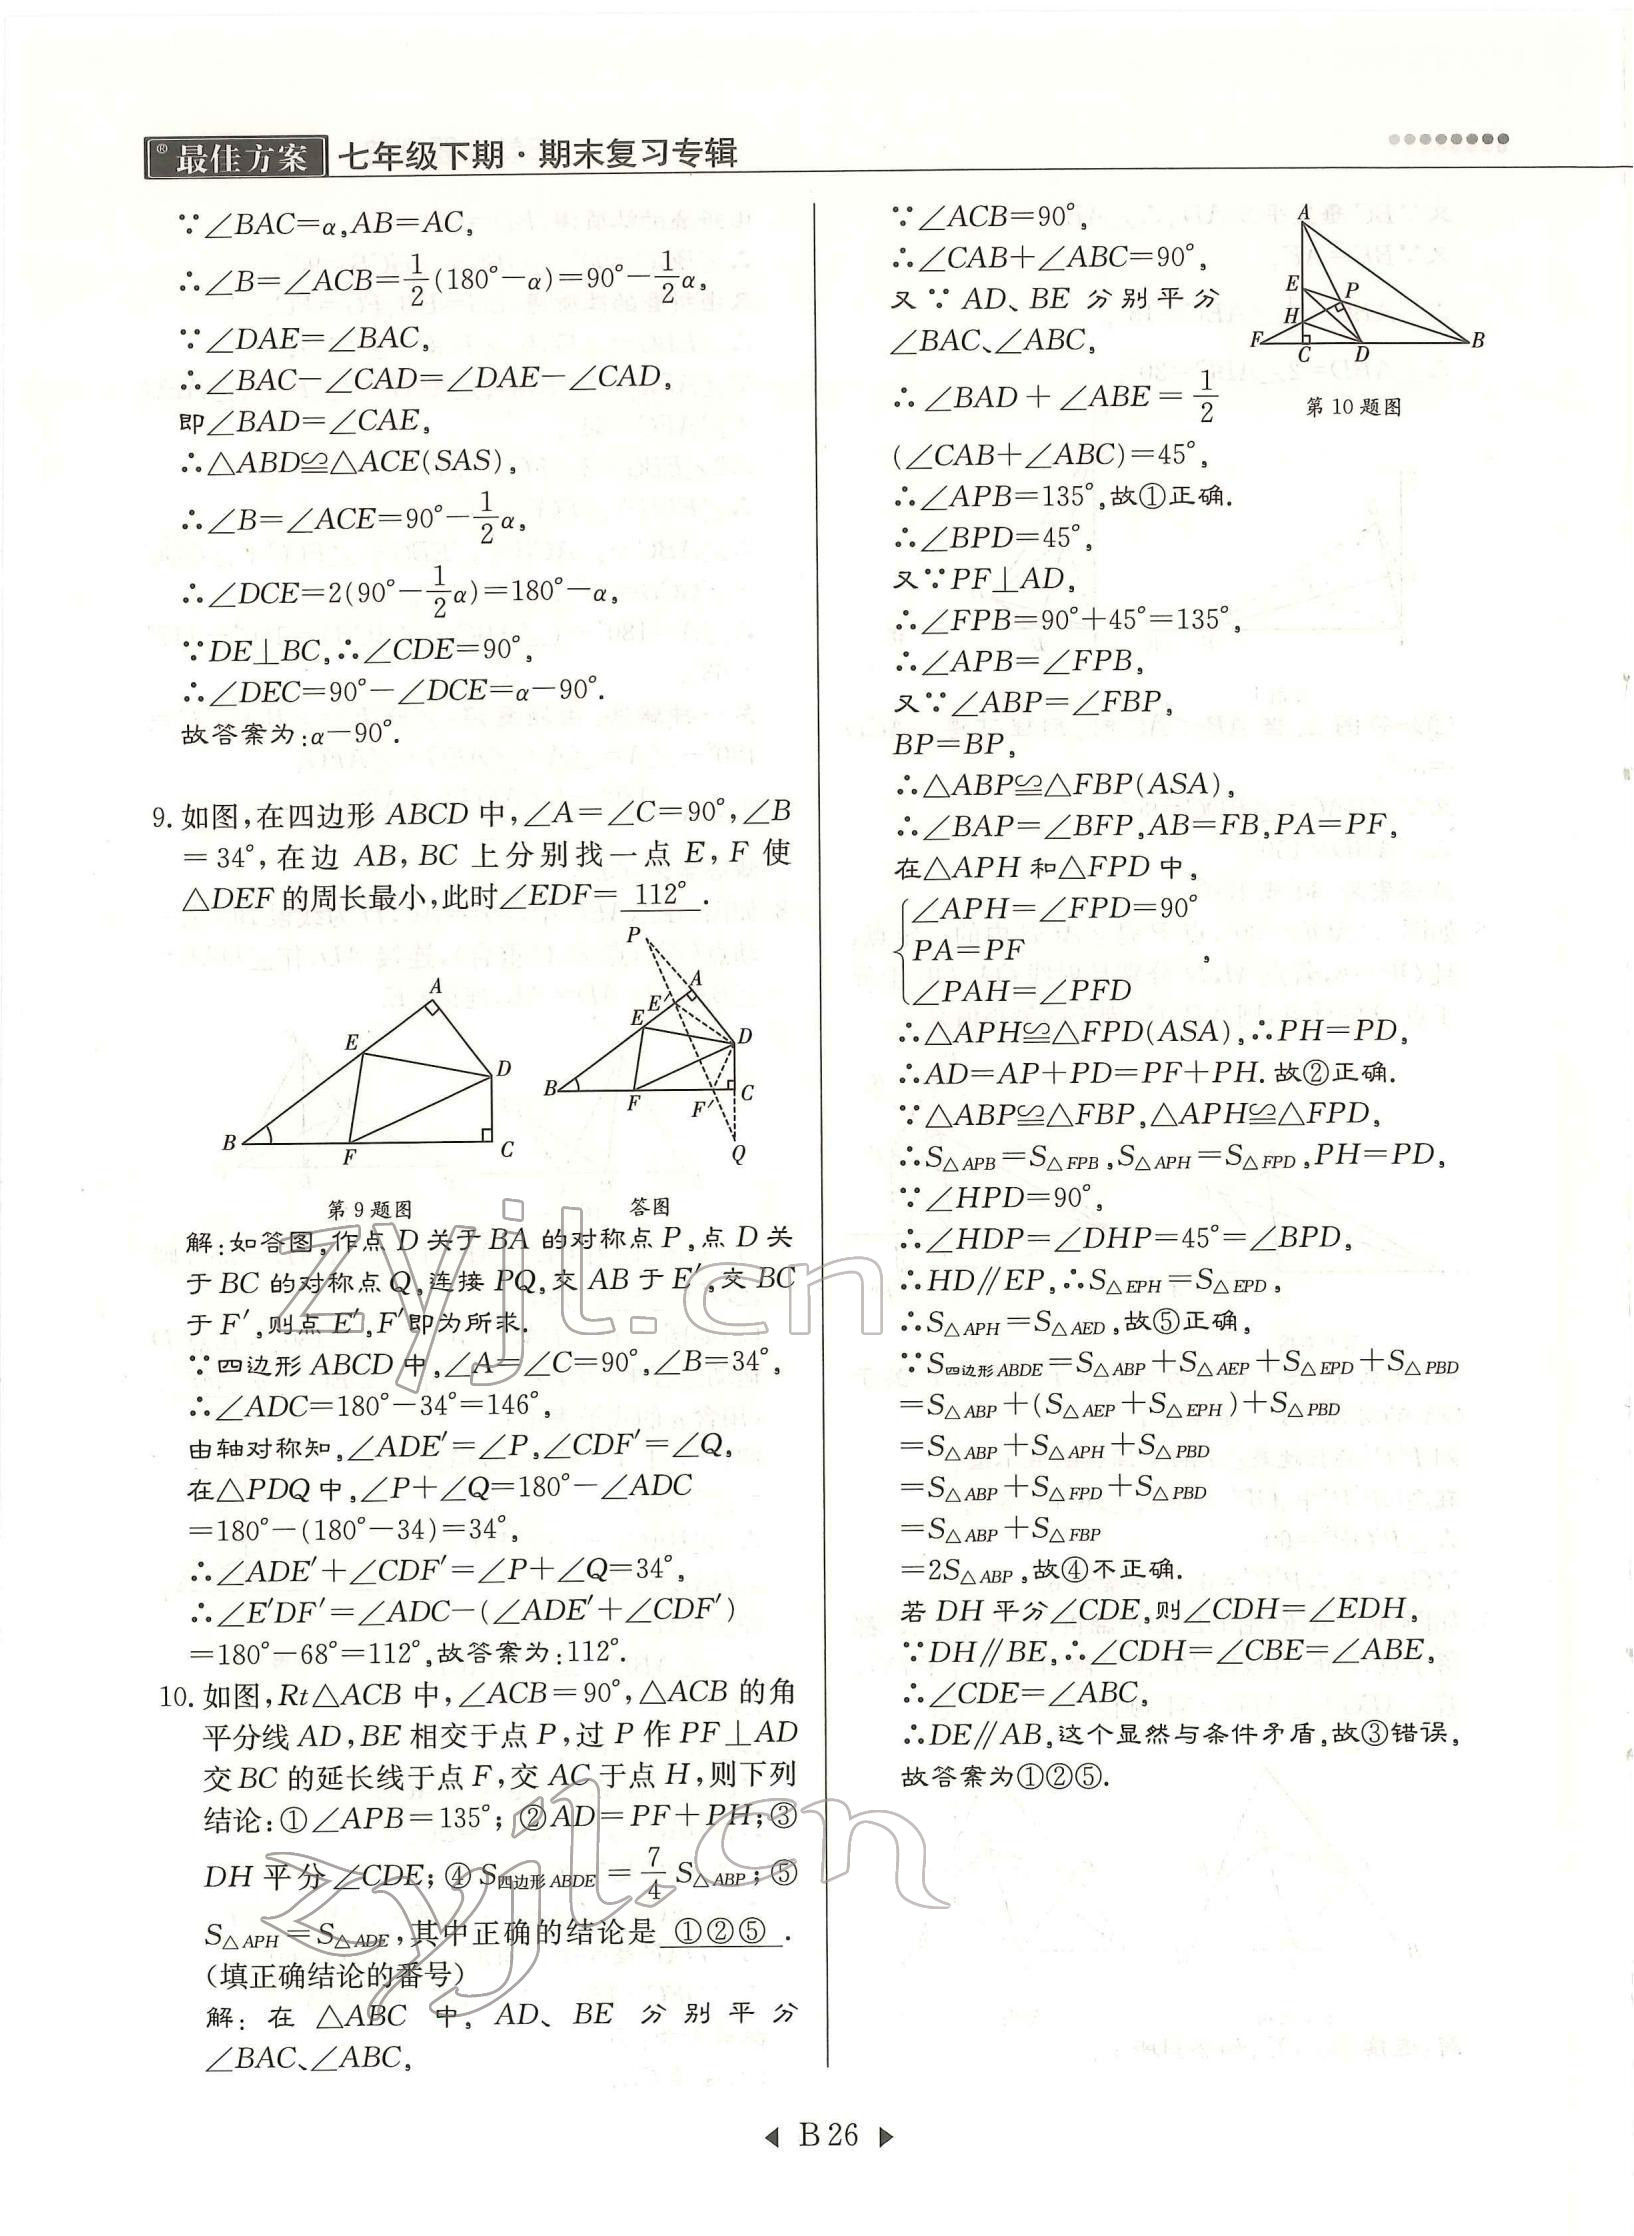 最佳方案® 七年级下期·期末复习专辑
∵∠BAC=α,AB=AC,
∴∠B=∠ACB=1/2(180°-α)=90°-1/2α,
∵∠DAE=∠BAC,
∴∠BAC-∠CAD=∠DAE-∠CAD,
即∠BAD=∠CAE,
∴△ABD≌△ACE(SAS),
∴∠B=∠ACE=90°-1/2α,
∴∠DCE=2(90°-1/2α)=180°-α,
∵DE⊥BC,∴∠CDE=90°,
∴∠DEC=90°-∠DCE=α-90°.
故答案为:α-90°.
9. 如图,在四边形 ABCD 中,∠A=∠C=90°,∠B
=34°,在边 AB,BC 上分别找一点 E,F 使
△DEF的周长最小,此时∠EDF= 112° .
A
E
D
B
F
C
P
A
E′
E
D
B
F
F′
C
Q
第9题图
答图
解:如答图,作点 D 关于 BA 的对称点 P,点 D 关
于 BC 的对称点 Q,连接 PQ,交 AB 于 E′,交 BC
于 F′,则点 E′,F′即为所求.
∵四边形 ABCD 中,∠A=∠C=90°,∠B=34°,
∴∠ADC=180°-34°=146°,
由轴对称知,∠ADE′=∠P,∠CDF′=∠Q,
在△PDQ 中,∠P+∠Q=180°-∠ADC
=180°-(180°-34)=34°,
∴∠ADE′+∠CDF′=∠P+∠Q=34°,
∴∠E′DF′=∠ADC-(∠ADE′+∠CDF′)
=180°-68°=112°,故答案为:112°.
10. 如图,Rt△ACB 中,∠ACB=90°,△ACB 的角
平分线 AD,BE 相交于点 P,过 P 作 PF⊥AD
交BC 的延长线于点 F,交 AC 于点 H,则下列
结论:①∠APB=135°;②AD=PF+PH;③
DH 平分∠CDE;④S四边形ABDE=7/4 S△ABP;⑤
S△APH=S△ADE,其中正确的结论是 ①②⑤ .
(填正确结论的番号)
解:在 △ABC 中,AD、BE 分别平分
∠BAC、∠ABC,
∵∠ACB=90°,
∴∠CAB+∠ABC=90°,
又∵AD、BE 分别平分
∠BAC、∠ABC,
∴∠BAD+∠ABE=1/2
(∠CAB+∠ABC)=45°,
A
E
P
H
F
C
D
B
第10题图
∴∠APB=135°,故①正确.
∴∠BPD=45°,
又∵PF⊥AD,
∴∠FPB=90°+45°=135°,
∴∠APB=∠FPB,
又∵∠ABP=∠FBP,
BP=BP,
∴△ABP≌△FBP(ASA),
∴∠BAP=∠BFP,AB=FB,PA=PF,
在△APH 和△FPD 中,
{∠APH=∠FPD=90°
PA=PF ,
∠PAH=∠PFD
∴△APH≌△FPD(ASA),∴PH=PD,
∴AD=AP+PD=PF+PH.故②正确.
∵△ABP≌△FBP,△APH≌△FPD,
∴S△APB=S△FPB,S△APH=S△FPD,PH=PD,
∵∠HPD=90°,
∴∠HDP=∠DHP=45°=∠BPD,
∴HD∥EP,∴S△EPH=S△EPD,
∴S△APH=S△AED,故⑤正确,
∵S四边形ABDE=S△ABP+S△AEP+S△EPD+S△PBD
=S△ABP+(S△AEP+S△EPH)+S△PBD
=S△ABP+S△APH+S△PBD
=S△ABP+S△FPD+S△PBD
=S△ABP+S△FBP
=2S△ABP,故④不正确.
若 DH 平分∠CDE,则∠CDH=∠EDH,
∵DH∥BE,∴∠CDH=∠CBE=∠ABE,
∴∠CDE=∠ABC,
∴DE∥AB,这个显然与条件矛盾,故③错误,
故答案为①②⑤.
zyjl.cn
zyjl.cn
B26